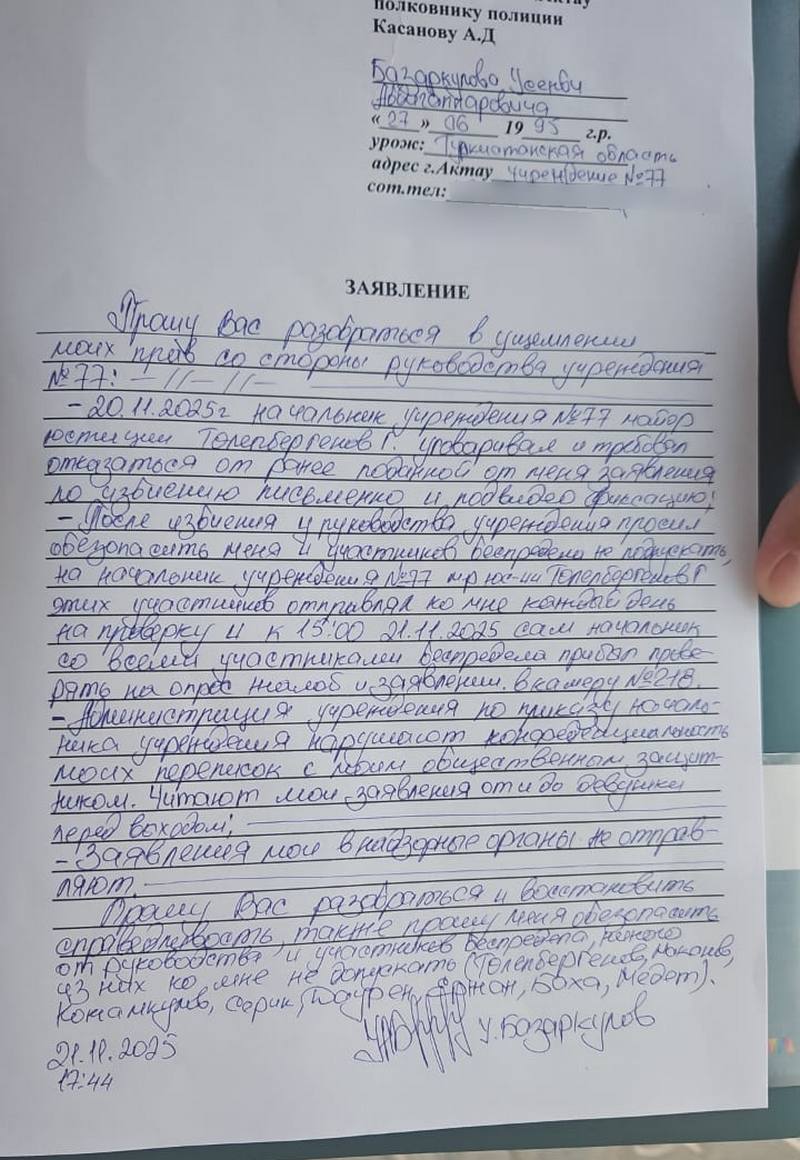 полковнику полиции
Касанову А.Д
Базаркулова Усенби
Абдигаппаровича
«27» 06 1995 г.р.
урож: Туркистанская область
адрес г.Актау учреждение №77
сот.тел:
ЗАЯВЛЕНИЕ
Прошу Вас разобраться в ущемлении
моих прав со стороны руководства учреждения
№77: – // – // –
– 20.11.2025г начальник учреждения №77 майор
юстиции Толепбергенов Г. уговаривал и требовал
отказаться от ранее поданной от меня заявления
по избиению письменно и под видео фиксацию;
– После избиения у руководства учреждения просил
обезопасить меня и участников беспредела не подпускать,
на начальник учреждения №77 м-р юс-ии Толепбергенов Г
этих участников отправлял ко мне каждый день
на проверку и к 15:00 21.11.2025 сам начальник
со всеми участниками беспредела прибыл прове-
рять на опрос жалоб и заявлении. в камеру №218.
– Администрация учреждения по приказу началь-
ника учреждения нарушают конфедециальность
моих переписок с моим общественным защит-
ником. Читают мои заявления от и до девушки
перед выходом;
– Заявления мои в надзорные органы не отправ-
ляют.
Прошу Вас разобраться и восстановить
справедливость, также прошу меня обезопасить
от руководства и участников беспредела, никого
из них ко мне не допускать (Толепбергенов,
Кожамкулов, Серик, Даурен, Ержан, Баха, Медет).
У. Базаркулов
21.11.2025
17:44